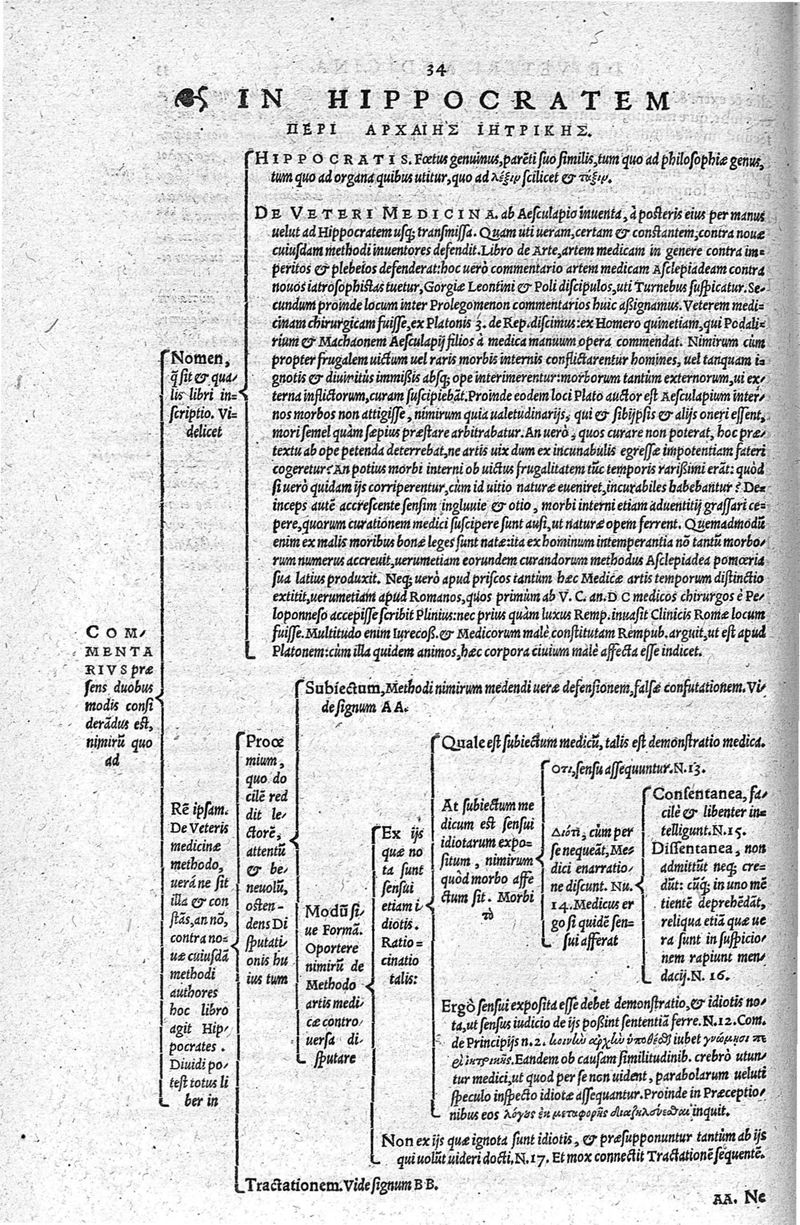 34
IN HIPPOCRATEM
ΠΕΡΙ ΑΡΧΑΙΗΣ ΙΗΤΡΙΚΗΣ.
COM-
MENTA
RIVS præ
sens duobus
modis consi
derādus est,
nimirū quo
ad
Nomen,
q̄ sit & qua-
lis libri in-
scriptio. Vi-
delicet
HIPPOCRATIS. Fœtus genuinus, parēti suo similis, tum quo ad philosophiæ genus,
tum quo ad organa quibus utitur, quo ad λέξιν scilicet & τάξιν.
DE VETERI MEDICINA. ab Aesculapio inuenta, à posteris eius per manus
uelut ad Hippocratem usq; transmissa. Quam uti ueram, certam & constantem, contra nouæ
cuiusdam methodi inuentores defendit. Libro de Arte, artem medicam in genere contra im-
peritos & plebeios defenderat: hoc uerò commentario artem medicam Asclepiadeam contra
nouos iatrosophistas tuetur, Gorgiæ Leontini & Poli discipulos, uti Turnebus suspicatur. Se-
cundum proinde locum inter Prolegomenon commentarios huic aßignamus. Veterem medi-
cinam chirurgicam fuisse, ex Platonis 3. de Rep. discimus: ex Homero quinetiam, qui Podali-
rium & Machaonem Aesculapij filios à medica manuum opera commendat. Nimirum cùm
propter frugalem uictum uel raris morbis internis conflictarentur homines, uel tanquam i-
gnotis & diuinitùs immißis absq; ope interimerentur: morborum tantum externorum, ui ex-
terna inflictorum, curam suscipiebāt. Proinde eodem loci Plato auctor est Aesculapium inter-
nos morbos non attigisse, nimirum quia ualetudinarijs, qui & sibijpsis & alijs oneri essent,
mori semel quàm sæpius præstare arbitrabatur. An uerò, quos curare non poterat, hoc præ-
textu ab ope petenda deterrebat, ne artis uix dum ex incunabulis egressæ impotentiam fateri
cogeretur? An potius morbi interni ob uictus frugalitatem tūc temporis rarißimi erāt: quòd
si uerò quidam ijs corriperentur, cùm id uitio naturæ eueniret, incurabiles habebantur? De-
inceps autē accrescente sensim ingluuie & otio, morbi interni etiam aduentitij grassari ce-
pere, quorum curationem medici suscipere sunt ausi, ut naturæ opem ferrent. Quemadmodū
enim ex malis moribus bonæ leges sunt natæ: ita ex hominum intemperantia nō tantū morbo-
rum numerus accreuit, uerumetiam eorundem curandorum methodus Asclepiadea pomœria
sua latius produxit. Neq; uerò apud priscos tantùm hæc Medicæ artis temporum distinctio
extitit, uerumetiam apud Romanos, quos primùm ab V. C. an. D C medicos chirurgos è Pe-
loponneso accepisse scribit Plinius: nec prius quàm luxus Remp. inuasit Clinicis Romæ locum
fuisse. Multitudo enim Iurecoß. & Medicorum malè constitutam Rempub. arguit, ut est apud
Platonem: cùm illa quidem animos, hæc corpora ciuium malè affecta esse indicet.
Rē ipsam.
De Veteris
medicinæ
methodo,
uerá ne sit
illa & con
stās, an nō,
contra no-
uæ cuiusdā
methodi
authores
hoc libro
agit Hip-
pocrates.
Diuidi po-
test totus li
ber in
Procœ
mium,
quo do
cilē red
dit le-
ctorē,
attentū
& be-
neuolū,
osten-
dens Di
sputati-
onis hu
ius tum
Subiectum, Methodi nimirum medendi ueræ defensionem, falsæ confutationem. Vi-
de signum AA.
Modū si-
ue Formā.
Oportere
nimirū de
Methodo
artis medi-
cæ contro-
uersa di-
sputare
Ex ijs
quæ no
ta sunt
sensui
etiam i-
diotis.
Ratio-
cinatio
talis:
Quale est subiectum medicū, talis est demonstratio medica.
At subiectum me
dicum est sensui
idiotarum expo-
situm, nimirum
quòd morbo affe
ctum sit. Morbi
τὸ
ὅτι, sensu assequuntur. N. 13.
Διότι, cùm per
se nequeāt, Me-
dici enarratio-
ne discunt. Nu.
14. Medicus er
go si quidē sen-
sui afferat
Consentanea, fa-
cilè & libenter in-
telligunt. N. 15.
Dissentanea, non
admittūt neq; cre-
dūt: cūq; in uno mē
tientē deprehēdāt,
reliqua etiā quæ ue
ra sunt in suspicio-
nem rapiunt men-
dacij. N. 16.
Ergò sensui exposita esse debet demonstratio, & idiotis no-
ta, ut sensus iudicio de ijs poßint sententiā ferre. N. 12. Com.
de Principijs n. 2. κοινὴν ἀρχὴν ὑποθέσθαι iubet γνώμῃσι πε
ρὶ ἰητρικῆς. Eandem ob causam similitudinib. crebrò utun-
tur medici, ut quod per se non uident, parabolarum ueluti
speculo inspecto idiotæ assequantur. Proinde in Præceptio-
nibus eos λόγους ἐκ μεταφορῆς inquit.
Non ex ijs quæ ignota sunt idiotis, & præsupponuntur tantùm ab ijs
qui uolūt uideri docti, N. 17. Et mox connectit Tractationē sequentē.
Tractationem. Vide signum BB.
AA. Ne